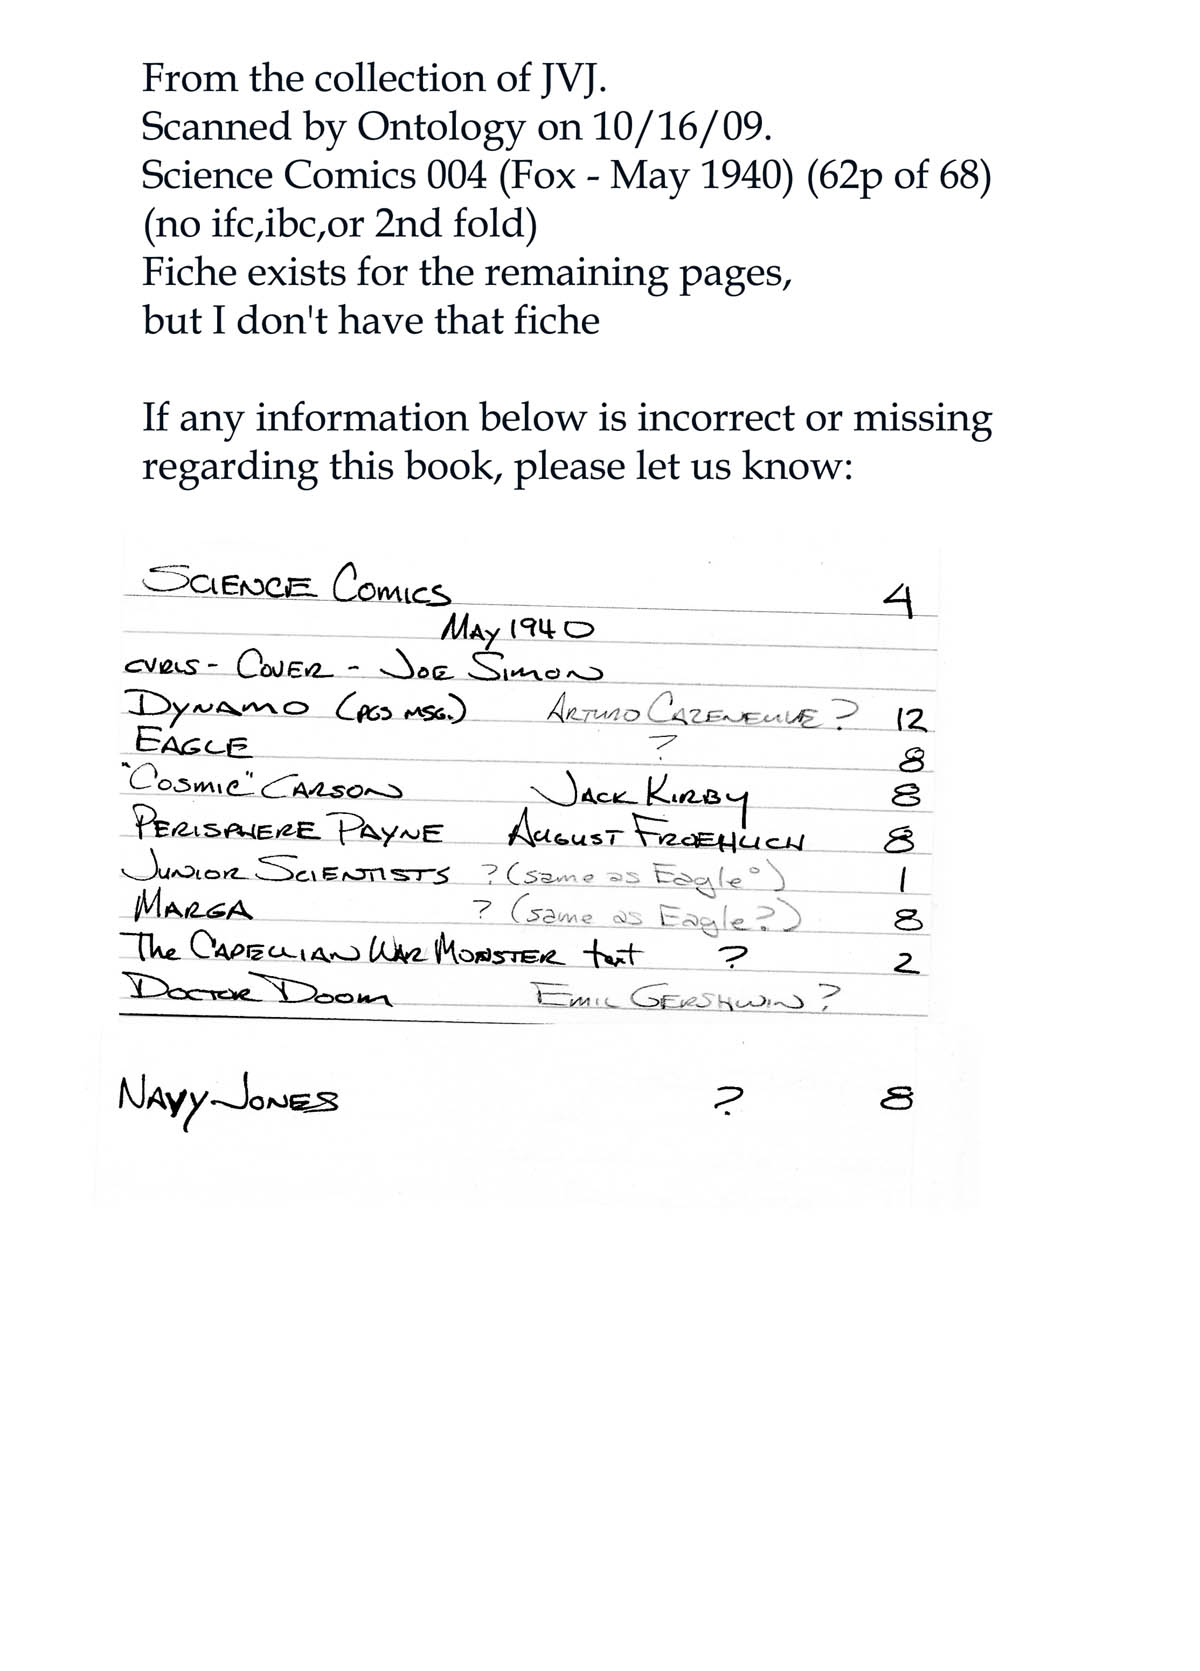 From the collection of JVJ.
Scanned by Ontology on 10/16/09.
Science Comics 004 (Fox - May 1940) (62p of 68)
(no ifc,ibc,or 2nd fold)
Fiche exists for the remaining pages,
but I don't have that fiche
If any information below is incorrect or missing
regarding this book, please let us know:
SCIENCE COMICS 4
MAY 1940
CVRLS - COVER - JOE SIMON
DYNAMO (PGS MSG.) ARTURO CAZENEUVE? 12
EAGLE ? 8
"COSMIC" CARSON JACK KIRBY 8
PERISPHERE PAYNE AUGUST FROEHLICH 8
JUNIOR SCIENTISTS ? (same as Eagle?) 1
MARGA ? (same as Eagle?) 8
The CAPELLIAN WAR MONSTER text ? 2
DOCTOR DOOM EMIL GERSHWIN?
NAVY JONES ? 8